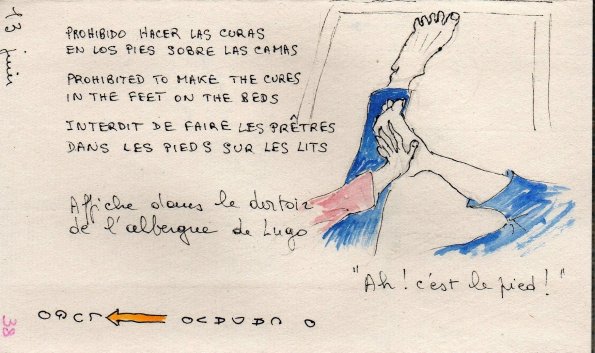 13 juin
PROHIBIDO HACER LAS CURAS
EN LOS PIES SOBRE LAS CAMAS
PROHIBITED TO MAKE THE CURES
IN THE FEET ON THE BEDS
INTERDIT DE FAIRE LES PRÊTRES
DANS LES PIEDS SUR LES LITS
Affiche dans le dortoir
de l'albergue de Lugo
"Ah! c'est le pied!"
O CADAVO → LUGO
38